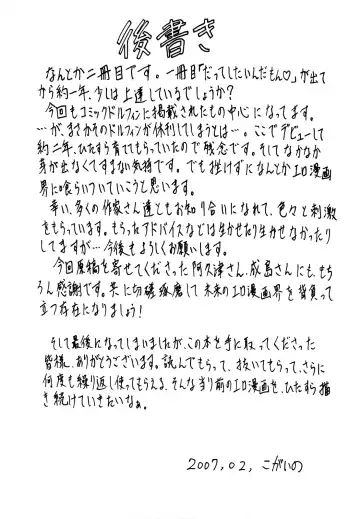 後書き
なんとか二冊目です。一冊目「だってしたいんだもん♡」が出て
から約一年、少しは上達しているでしょうか?
今回もコミックドルフィンに掲載されたもの中心になってます。
…が、まさかそのドルフィンが休刊してしまうとは…。ここでデビューして
約二年、ひたすら育ててもらっていたので残念です。そしてなかなか
芽が出なくてすまない気持です。でも挫けずになんとかエロ漫画
界に喰らいついていこうと思います。
幸い、多くの作家さん達ともお知り合いになれて、色々と刺激
をもらっています。もらったアドバイスなどは生かせたり生かせなかったり
してますが…今後もよろしくお願いします。
今回原稿を寄せてくださった阿久津さん、成島さんにも、もち
ろん感謝です。共に切磋琢磨して未来のエロ漫画界を背負って
立つ存在になりましょう!
そして最後になってしまいましたが、この本を手に取ってくださった
皆様、ありがとうございます。読んでもらって、抜いてもらって、さらに
何度も繰り返し使ってもらえる、そんな当り前のエロ漫画を、ひたすら描
き続けていきたいなぁ。
2007,02, こがいの